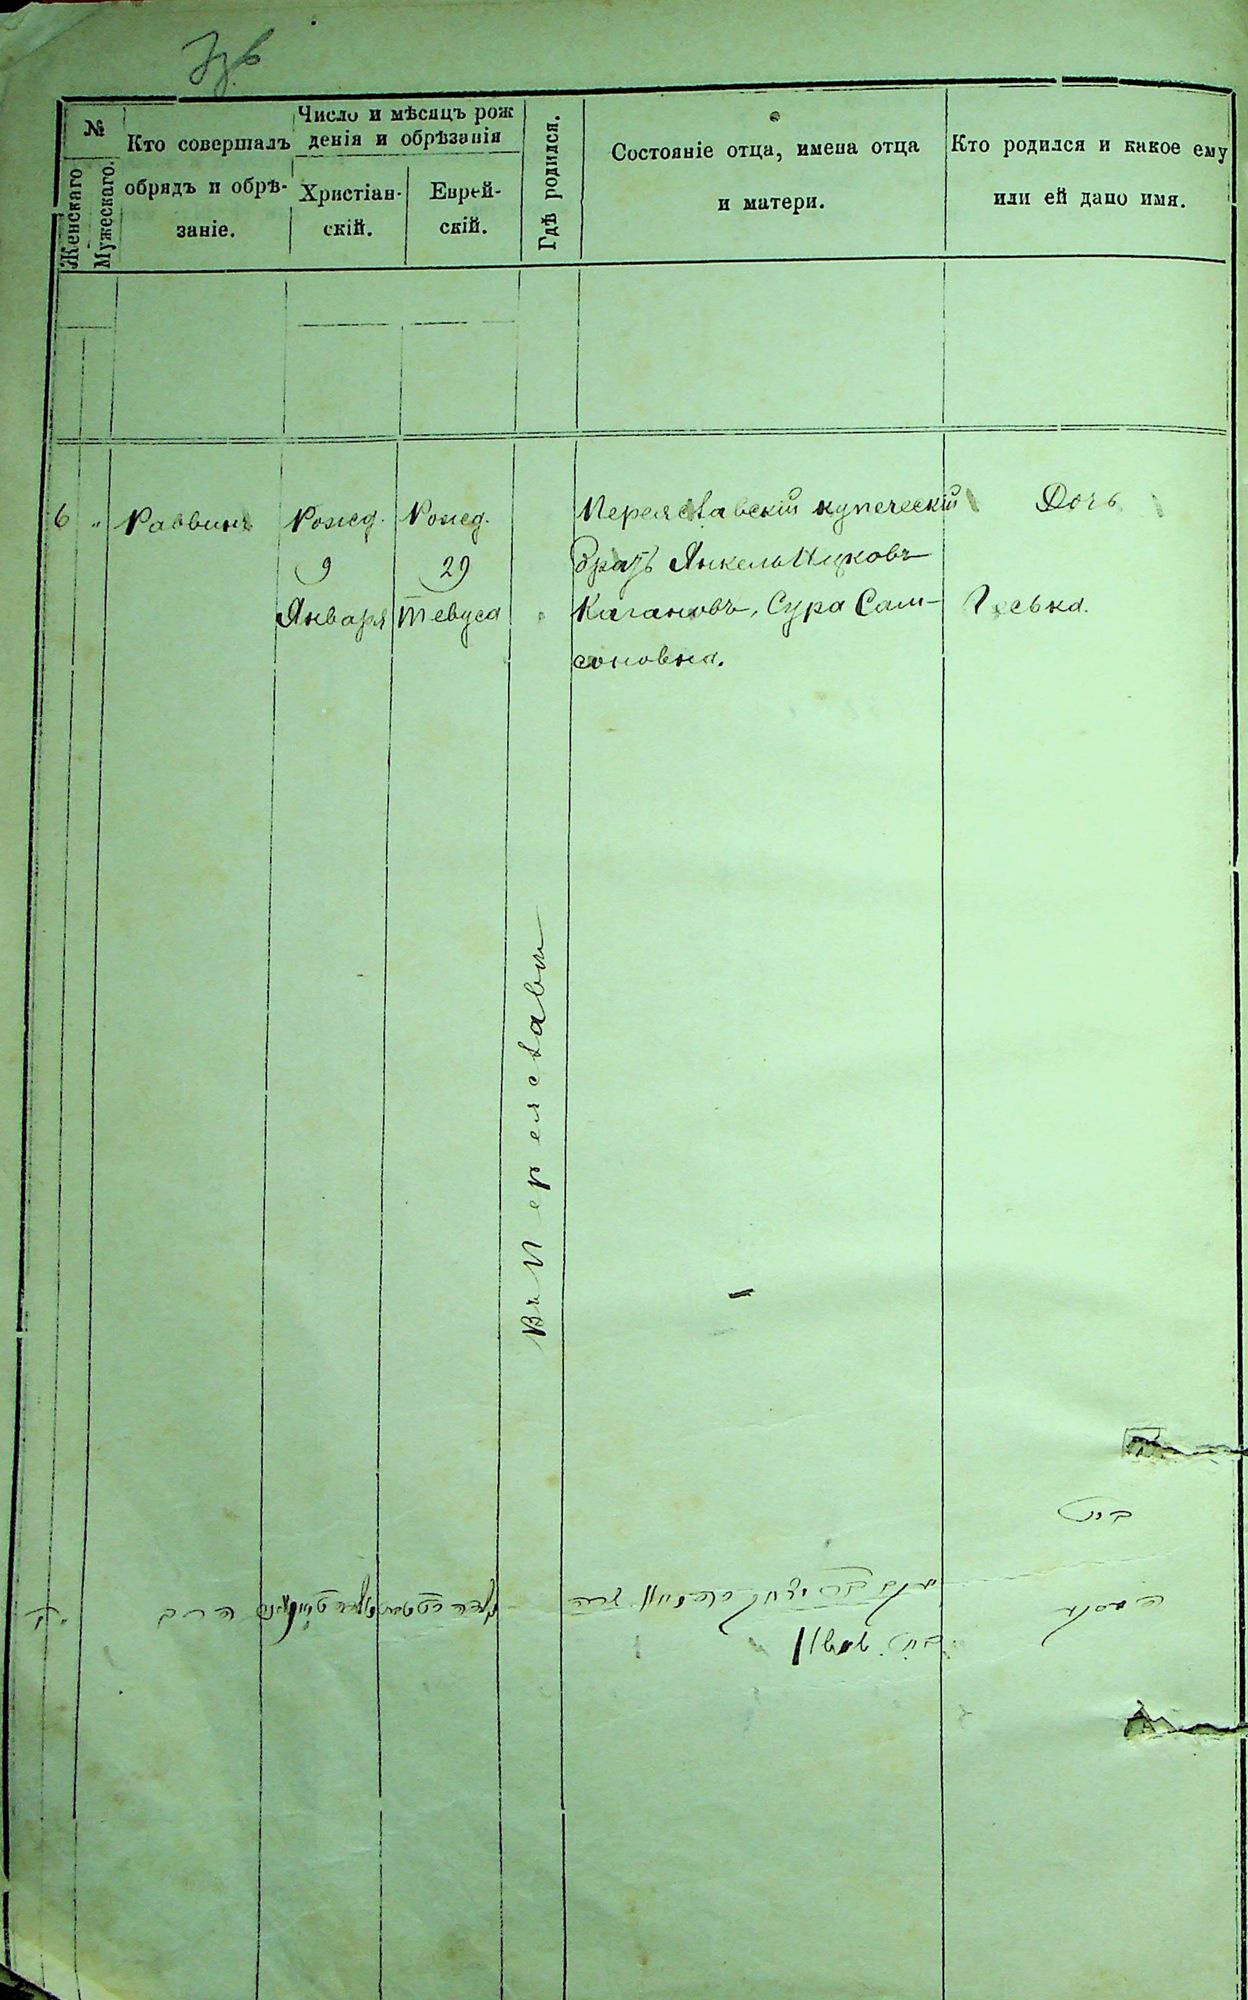 №
Женскаго
Мужескаго.
Кто совершалъ
обрядъ и обрѣ-
заніе.
Число и мѣсяцъ рож
денія и обрѣзанія
Христіан-
скій.
Еврей-
скій.
Гдѣ родился.
Состояніе отца, имена отца
и матери.
Кто родился и какое ему
или ей дано имя.
6 "
Раввинъ
Рожд.
9
Января
Рожд.
29
Тевуса
Въ Переяславѣ
Переяславскій купеческій
братъ Янкель Ицковъ
Кагановъ, Сура Сам-
соновна.
Дочь
Госька.
בת
הרב